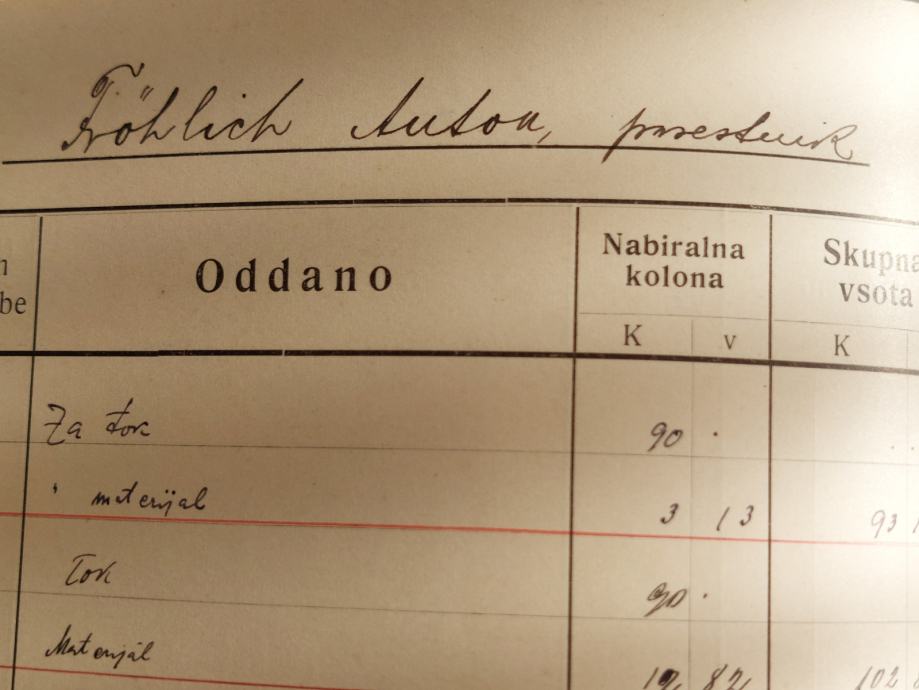 Fröhlich Anton, posestnik
Oddano
Nabiralna
kolona
Skupna
vsota
K v K
Za tok 90 .
" materijal 3 13 93
Tok 90 .
Materijal 102